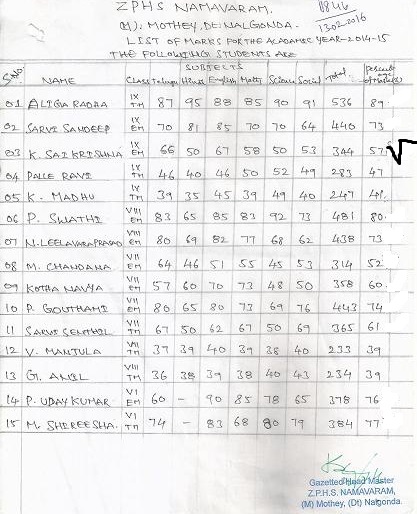 ZPHS NAMAVARAM,
(M): MOTHEY, Dt: NALGONDA.
13-02-2016
LIST OF MARKS FOR THE ACADAMIC YEAR-2014-15
THE FOLLOWING STUDENTS ARE
SUBJECTS
S.NO. NAME Class Telugu Hindi English Maths Science Social Total percent age of marks(%)
01 ALIGVA RADHA IX TM 87 95 88 85 90 91 536 89.
02 SARVI SANDEEP IX EM 70 81 85 70 70 64 440 73
03 K. SAI KRISHNA IX EM 66 50 67 58 50 53 344 57
04 PALLE RAVI IX TM 46 40 46 50 52 49 283 47
05 K. MADHU IX TM 39 35 45 39 49 40 247 41.
06 P. SWATHI VIII EM 83 65 85 83 92 73 481 80.
07 N. LEELAVARAPRASAD VIII EM 80 69 82 77 68 62 438 73
08 M. CHANDANA VIII EM 64 46 51 55 45 53 314 52
09 KOTHA NAVYA VIII EM 57 60 70 73 48 50 358 60.
10 P. GOUTHAMI VIII EM 80 65 80 73 69 76 443 74
11 SARVI SENTHIL VIII TM 67 50 62 67 50 69 365 61
12 V. MANJULA VIII TM 37 39 40 39 38 40 233 39
13 G. ANIL VIII TM 36 38 39 38 40 43 234 39
14 P. UDAY KUMAR VI EM 60 - 90 85 78 65 378 76
15 M. SHIREESHA. VI TM 74 - 83 68 80 79 384 77
Gazetted Head Master
Z.P.H.S. NAMAVARAM,
(M) Mothey, (Dt) Nalgonda.